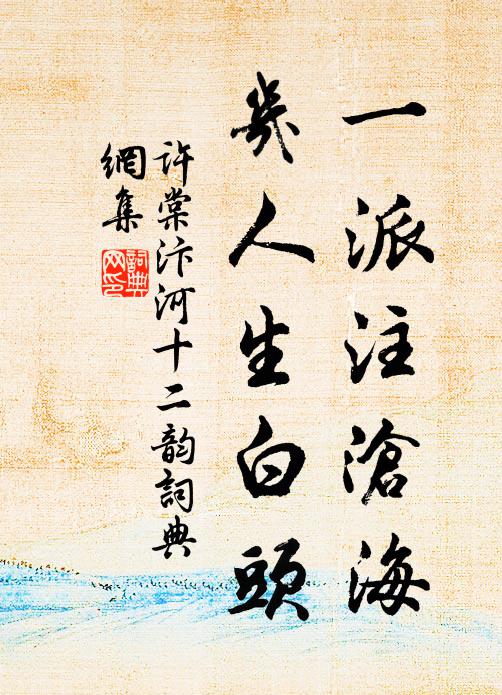 一派注滄海
幾人生白頭
許棠汴河十二韵詞典
網集
詞典
网印